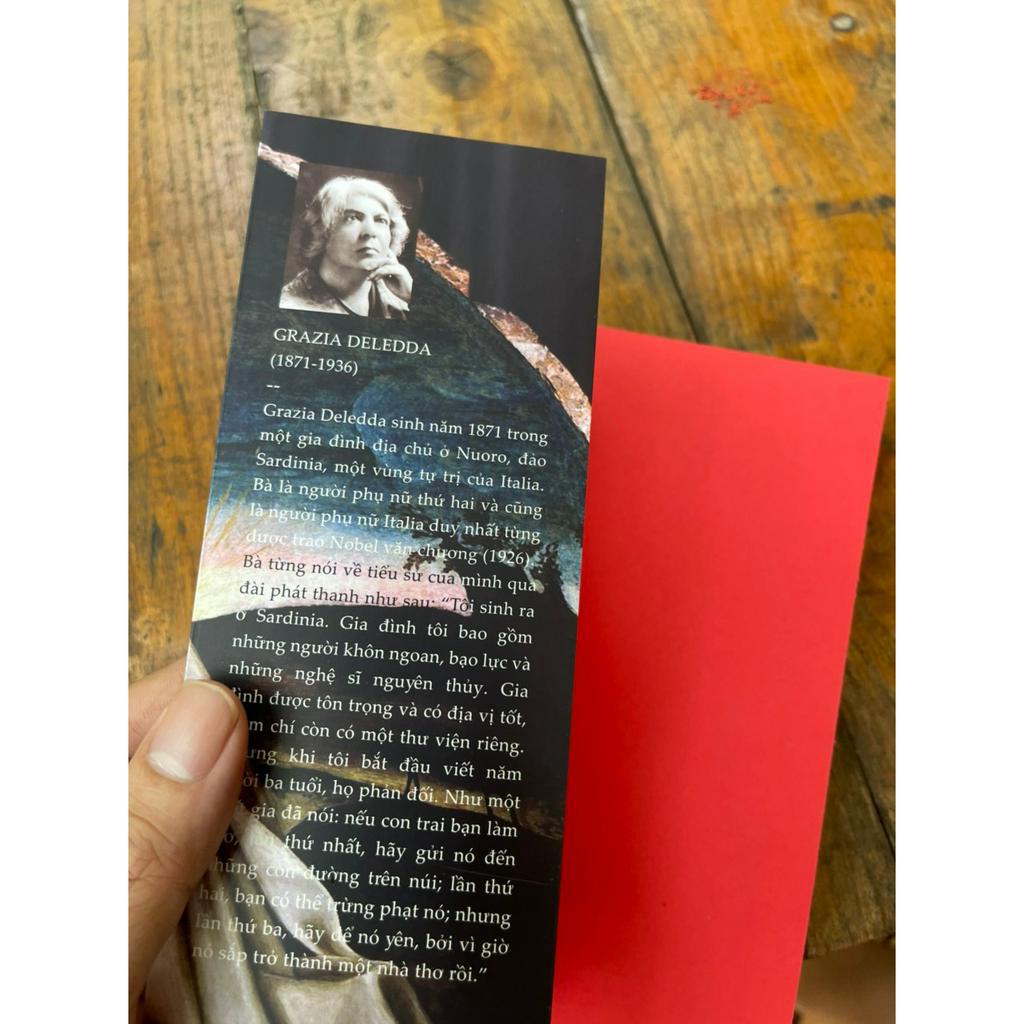 GRAZIA DELEDDA
(1871-1936)
--
Grazia Deledda sinh năm 1871 trong
một gia đình địa chủ ở Nuoro, đảo
Sardinia, một vùng tự trị của Italia.
Bà là người phụ nữ thứ hai và cũng
là người phụ nữ Italia duy nhất từng
được trao Nobel văn chương (1926)
Bà từng nói về tiểu sử của mình qua
đài phát thanh như sau: “Tôi sinh ra
ở Sardinia. Gia đình tôi bao gồm
những người khôn ngoan, bạo lực và
những nghệ sĩ nguyên thủy. Gia
được tôn trọng và có địa vị tốt,
chí còn có một thư viện riêng.
khi tôi bắt đầu viết năm
ba tuổi, họ phản đối. Như một
gia đã nói: nếu con trai bạn làm
thứ nhất, hãy gửi nó đến
những con đường trên núi; lần thứ
hai, bạn có thể trừng phạt nó; nhưng
lần thứ ba, hãy để nó yên, bởi vì giờ
nó sắp trở thành một nhà thơ rồi.”